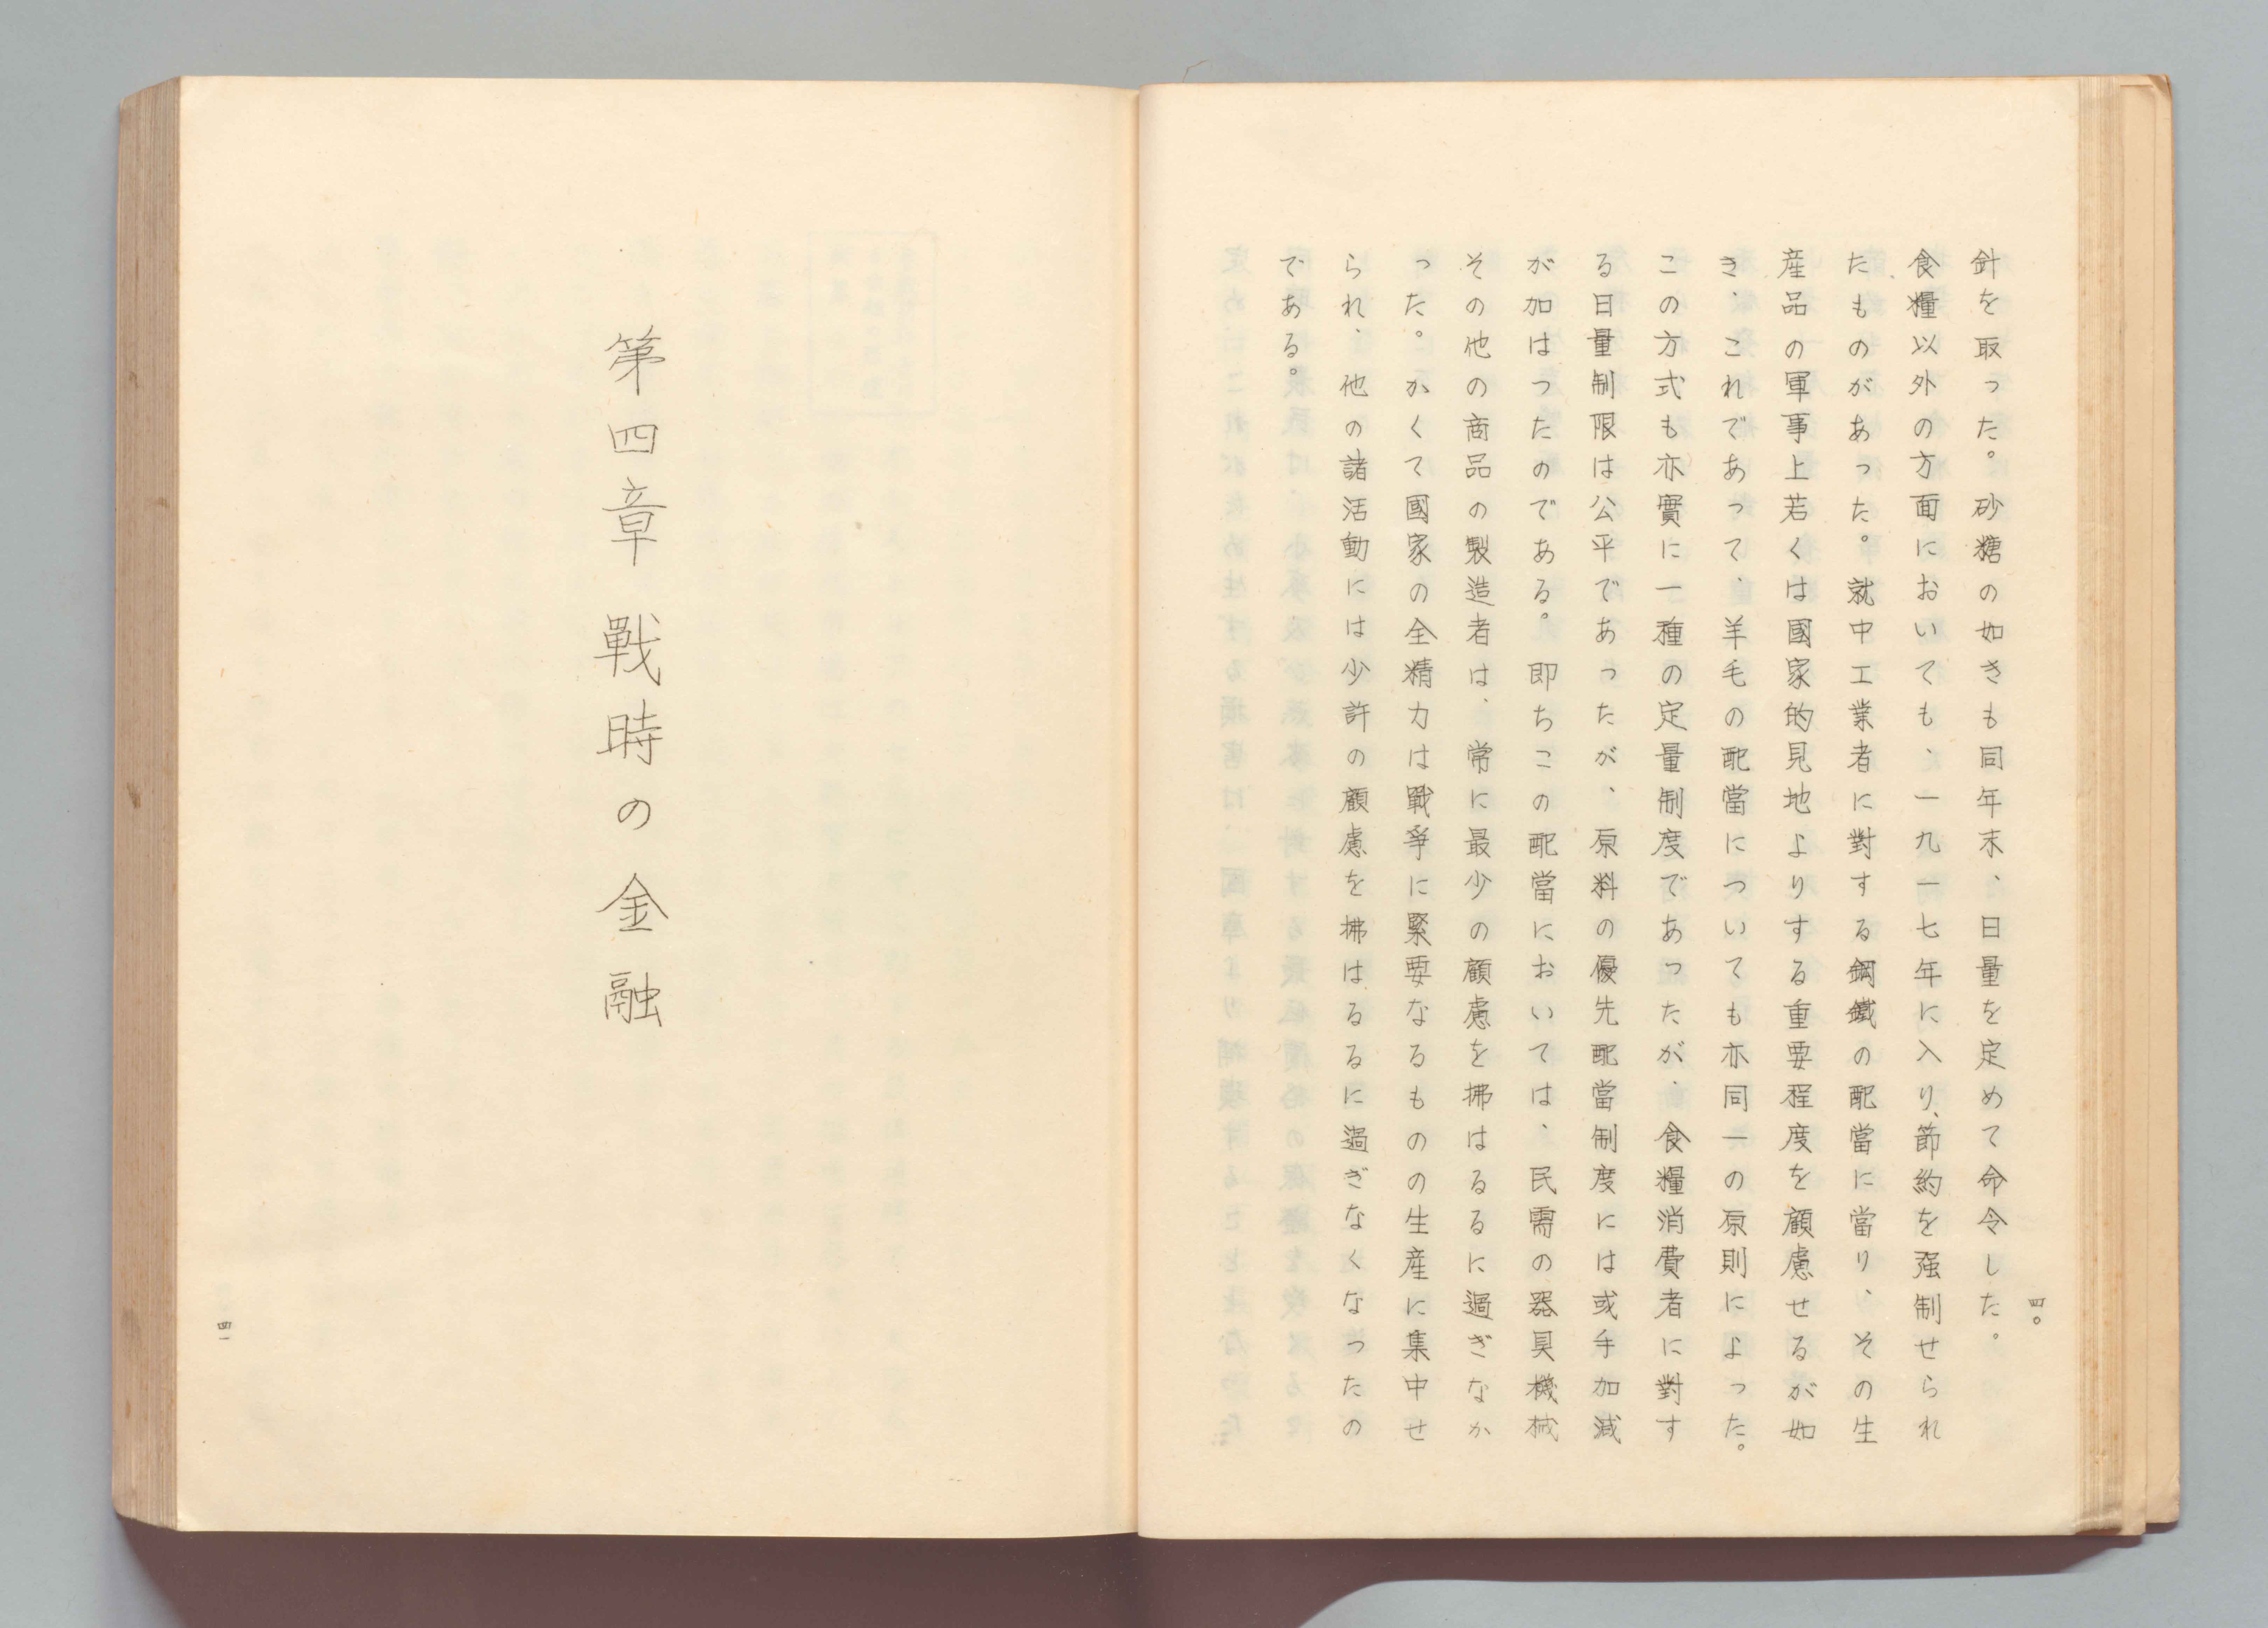 針を取った。砂糖の如きも同年末、日量を定めて命令した。
食糧以外の方面においても、一九一七年に入り、節約を强制せられ
たものがあった。就中工業者に對する鋼鐵の配當に當り、その生
産品の軍事上若くは國家的見地よりする重要程度を顧慮せるが如
き、これであって、羊毛の配當についても亦同一の原則によった。
この方式も亦實に一種の定量制度であったが、食糧消費者に對す
る日量制限は公平であったが、原料の優先配當制度には或手加減
が加はったのである。即ちこの配當においては、民需の器具機械
その他の商品の製造者は、常に最少の顧慮を拂はるるに過ぎなか
った。かくて國家の全精力は戰爭に緊要なるものの生産に集中せ
られ、他の諸活動には少許の顧慮を拂はるるに過ぎなくなったの
である。
四〇
第四章 戰時の金融
四一